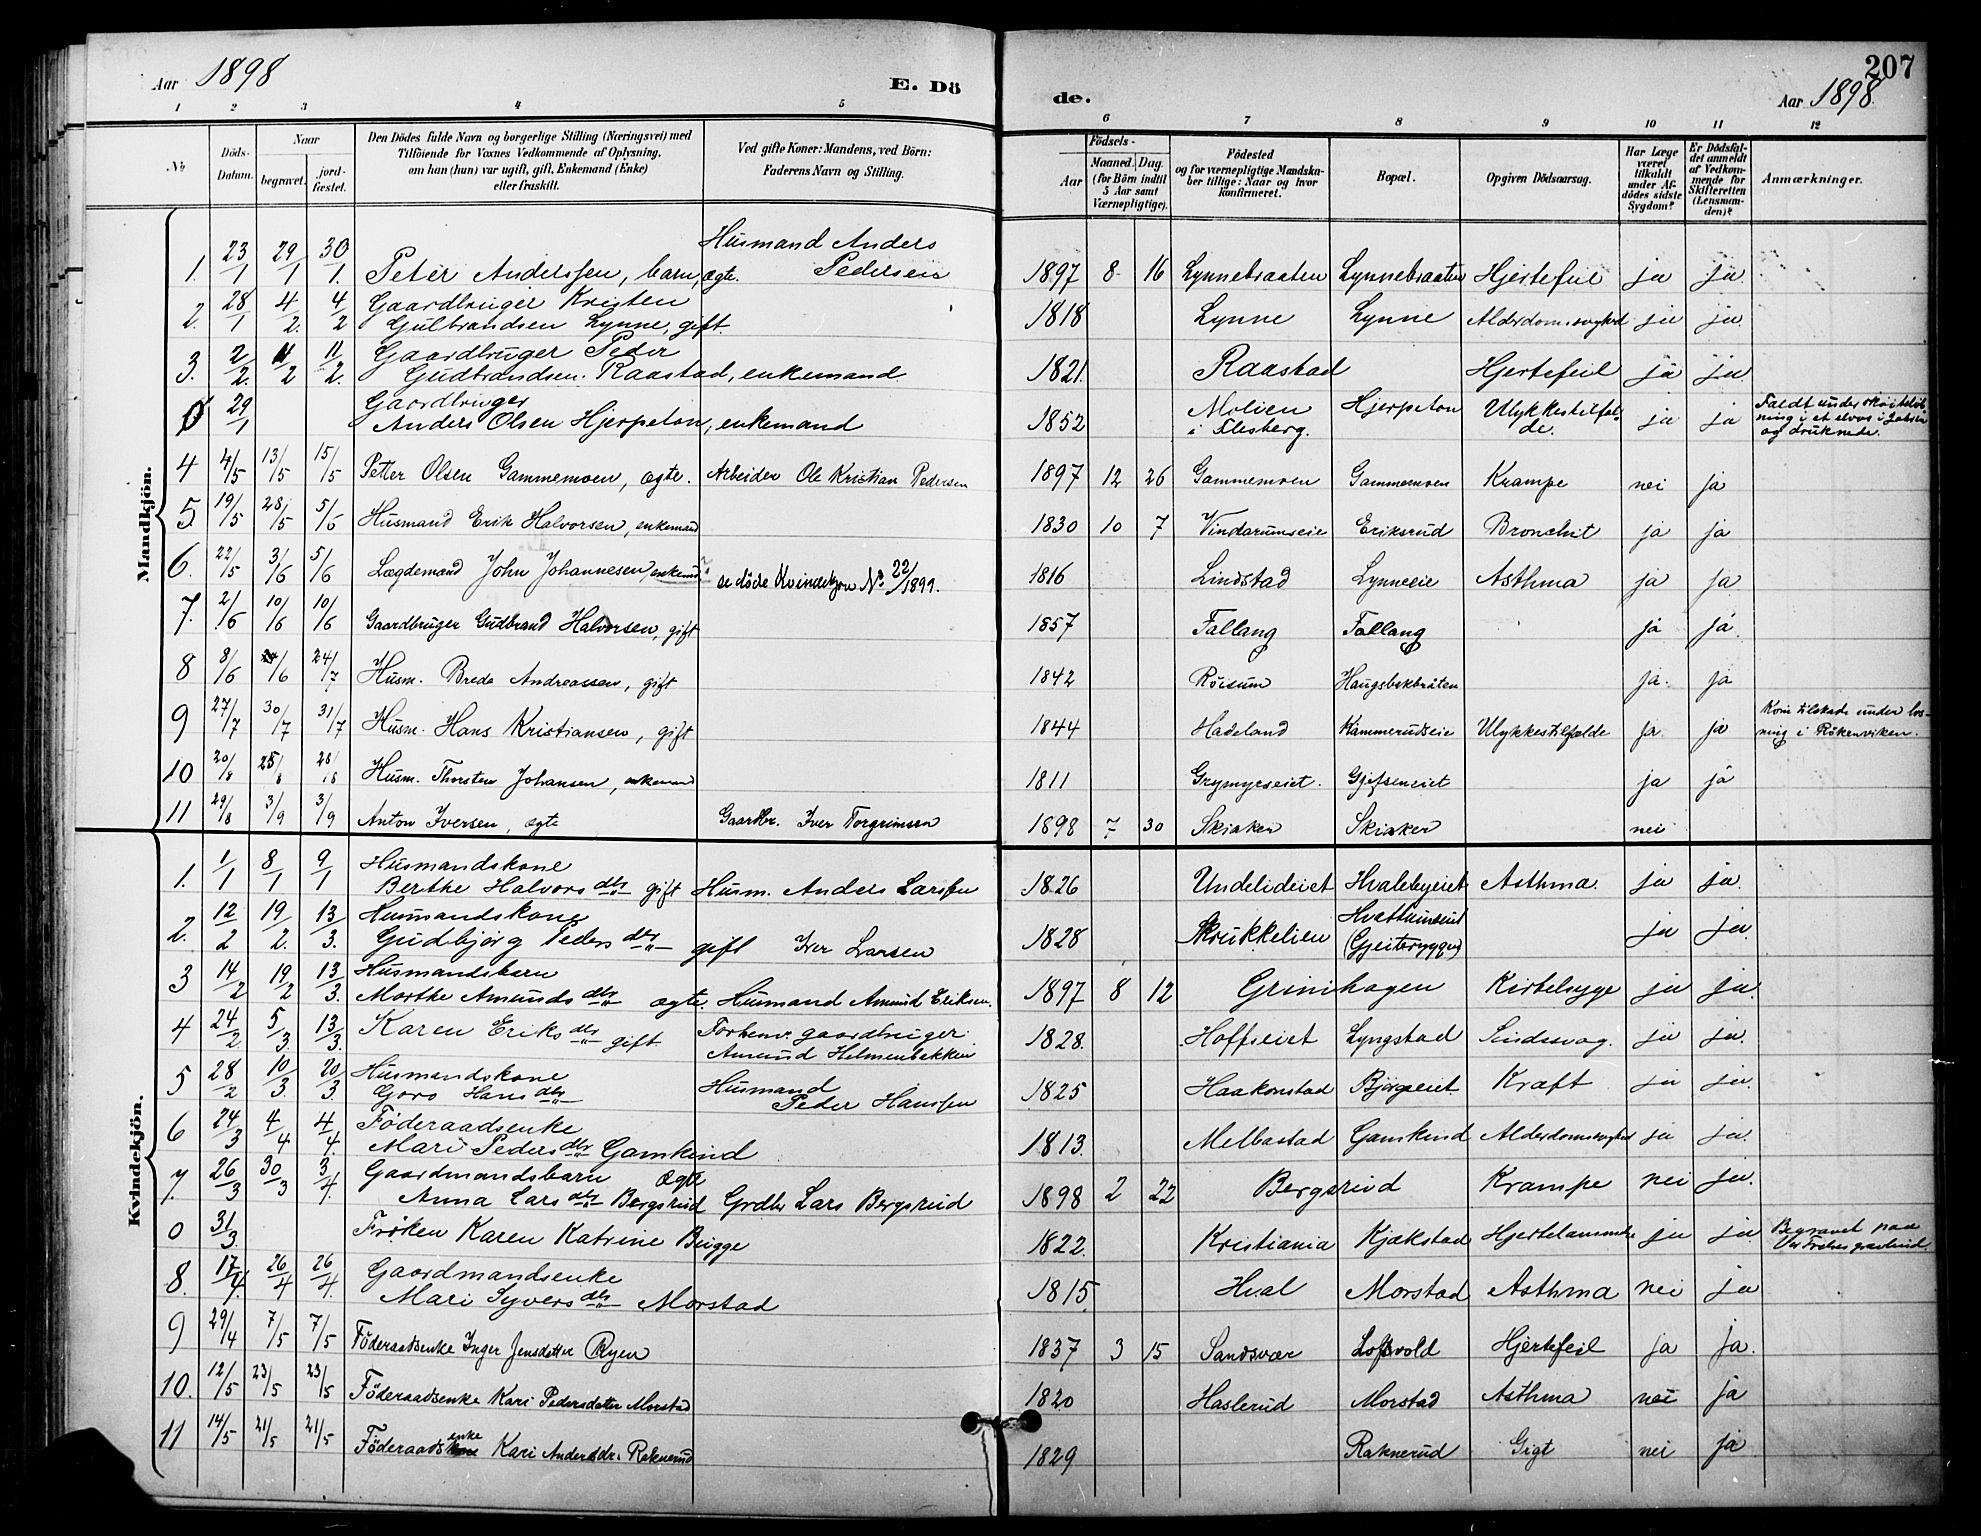 207
Aar 1898 E. Dö
de. Aar 1898
1 2 3 4 5 6 7 8 9 10 11 12
No
Döds-Datum.
Naar
begravet.
jord-fæstet.
Den Dödes fulde Navn og borgerlige Stilling (Næringsvei) med
Tilföiende for Voxnes Vedkommende af Oplysning,
om han (hun) var ugift, gift, Enkemand (Enke)
eller fraskilt.
Ved gifte Koner: Mandens, ved Börn:
Faderens Navn og Stilling.
Födsels-
Aar
Maaned. Dag.
(for Börn indtil
5 Aar samt
Værnepligtige).
Födested
og for værnepligtige Mandska-
ber tillige: Naar og hvor
konfirmeret.
Bopæl.
Opgiven Dödsaarsag.
Har Læge
været
tilkaldt
under Af-
dödes sidste
Sygdom?
Er Dödsfal-
det anmeldt
af Vedkom-
mende for
Skifteretten
(Lensman-
den)?
Anmærkninger.
Mandkjön.
1. 23/1 29/1 30/1. Peter Anderssen, barn, ægte. Husmand Anders Pedersen 1897 8 16 Lynnebraaten Lynnebraaten Hjertefeil ja ja.
2. 28/1 4/2. 4/2 Gaardbruger Kristen Gulbrandsen Lynne, gift 1818 Lynne Lynne Alderdomssvaghed ja ja.
3. 2/2. 11/2 11/2. Gaardbruger Peder Gudbrandsen Raastad, enkemand 1821. Raastad Hjertefeil ja ja.
0 29/1 Gaardbruger Anders Olsen Hjerpeton, enkemand 1852 Molien i Flesberg. Hjerpeton Ulykkestilfælde. ja ja Faldt under og druknede.
4 4/5 13/5 15/5 Petter Olsen Gammemoen, ægte. Arbeider Ole Kristian Pedersen 1897 12 26 Gammemoen Gammemoen Krampe nei ja
5. 19/5 28/5 5/6 Husmand Erik Halvorsen, enkemand 1830 10 7 Vindarumseie Eriksrud Bronchit ja ja
6. 22/5 3/6 5/6 Lægdemand John Johannesen enkemd. se döde Kvindekjön No 22/1899. 1816 Lindstad Lynneeie Asthma ja ja
7. 2/6 10/6 10/6 Gaardbruger Gudbrand Halvorsen, gift 1857 Fallang Fallang ja ja.
8 8/6 /6 24/7 Husm. Brede Andreassen, gift 1842 Röisum Haugsbakbråten ja. ja
9 27/7 30/7 31/7 Husm. Hans Kristiansen, gift 1844 Hadeland Hammerudseie Ulykkestilfælde ja ja Kom tilskade under los-ning i Rökenviken.
10 20/8 25/8 28/8 Husm. Thorsten Johansen, enkemand 1811 Grymyreiet. Gjefseneiet ja ja
11 29/8 3/9 3/9 Anton Iversen, ægte Gaardbr. Iver Torgrimsen 1898 7 30 Skiaker Skiaker nei
Kvindekjön.
1. 1/1 8/1 9/1 Husmandskone Berthe Halvorsdtr gift Husm. Anders Larssen 1826 Undelideiet Hvalebyeiet Asthma. ja ja.
2. 12/2 19/2. 13/3. Husmandskone Gudbjörg Pedersdtr gift Iver Larsen 1828 Skrukkelien Hvattumseiet (Gjeiteryggen) ja ja.
3 14/2 19/2 13/3. Husmandsbarn Marthe Amundsdtr ægte. Husmand Amund Eriksen. 1897 8 12 Grinihagen Kirtelsyge ja ja.
4 24/2 5/3. 13/3. Karen Eriksdtr gift. Forhenv. gaardbruger Amund Helmenbakken 1828. Hoffseiet Lyngstad Sindssvag. ja ja.
5 28/2 10/3. 20/3. Husmandskone Goro Hansdtr Husmand Peder Hanssen 1825 Haakonstad Björgeeiet Kræft ja ja.
6 24/3 4/4 4/4. Föderaadsenke Mari Pedersdtr Gamkind 1813. Melbostad Gamkind Alderdomssvaghed ja ja.
7. 26/3 30/3 3/4. Gaardmandsbarn ægte Anna Larsdtr Bergsrud Grdbr Lars Bergsrud 1898 2 22 Bergsrud Krampe nei ja.
0 31/3. Fröken Karen Katrine Brügge 1822. Kristiania Kjøkstad Hjertelammelse ja ja Begravet paa Vor Frelsers gravlund.
8. 17/4. 26/4 26/4. Gaardmandsenke Mari Syversdtr Morstad 1815. Hval Morstad Asthma nei ja
9 29/4 7/5 7/5 Föderaadsenke Inger Jensdatter Ryen 1837 3 15 Sandsvær Loftvold Hjertefeil ja ja.
10. 12/5 23/5 23/5 Föderaadsenke Kari Pedersdatter Morstad 1820 Haslerud Morstad Asthma nei ja
11 14/5 21/5 21/5 Föderaadsenke Kari Andersdr. Raknerud 1829 Raknerud Gigt nei ja